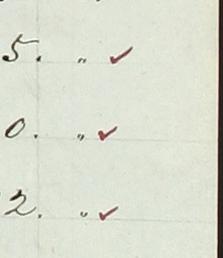 5. " ✓
0. " ✓
2. " ✓